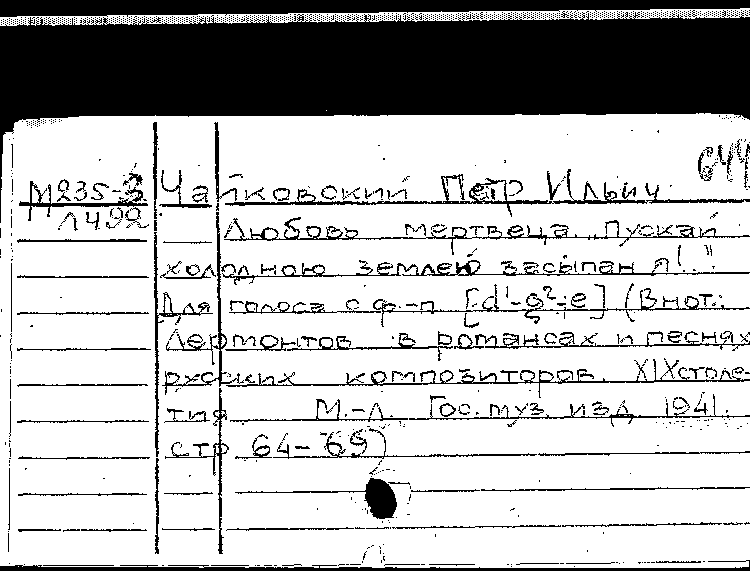 649
М235-3
Л492
Чайковский Петр Ильич
Любовь мертвеца. „Пускай
холодною землею засыпан я!.."
Для голоса с ф-п [d¹-g²; e] (В нот.:
Лермонтов в романсах и песнях
русских композиторов. XIX столе-
тия М.-Л. Гос. муз. изд. 1941.
стр 64-69)